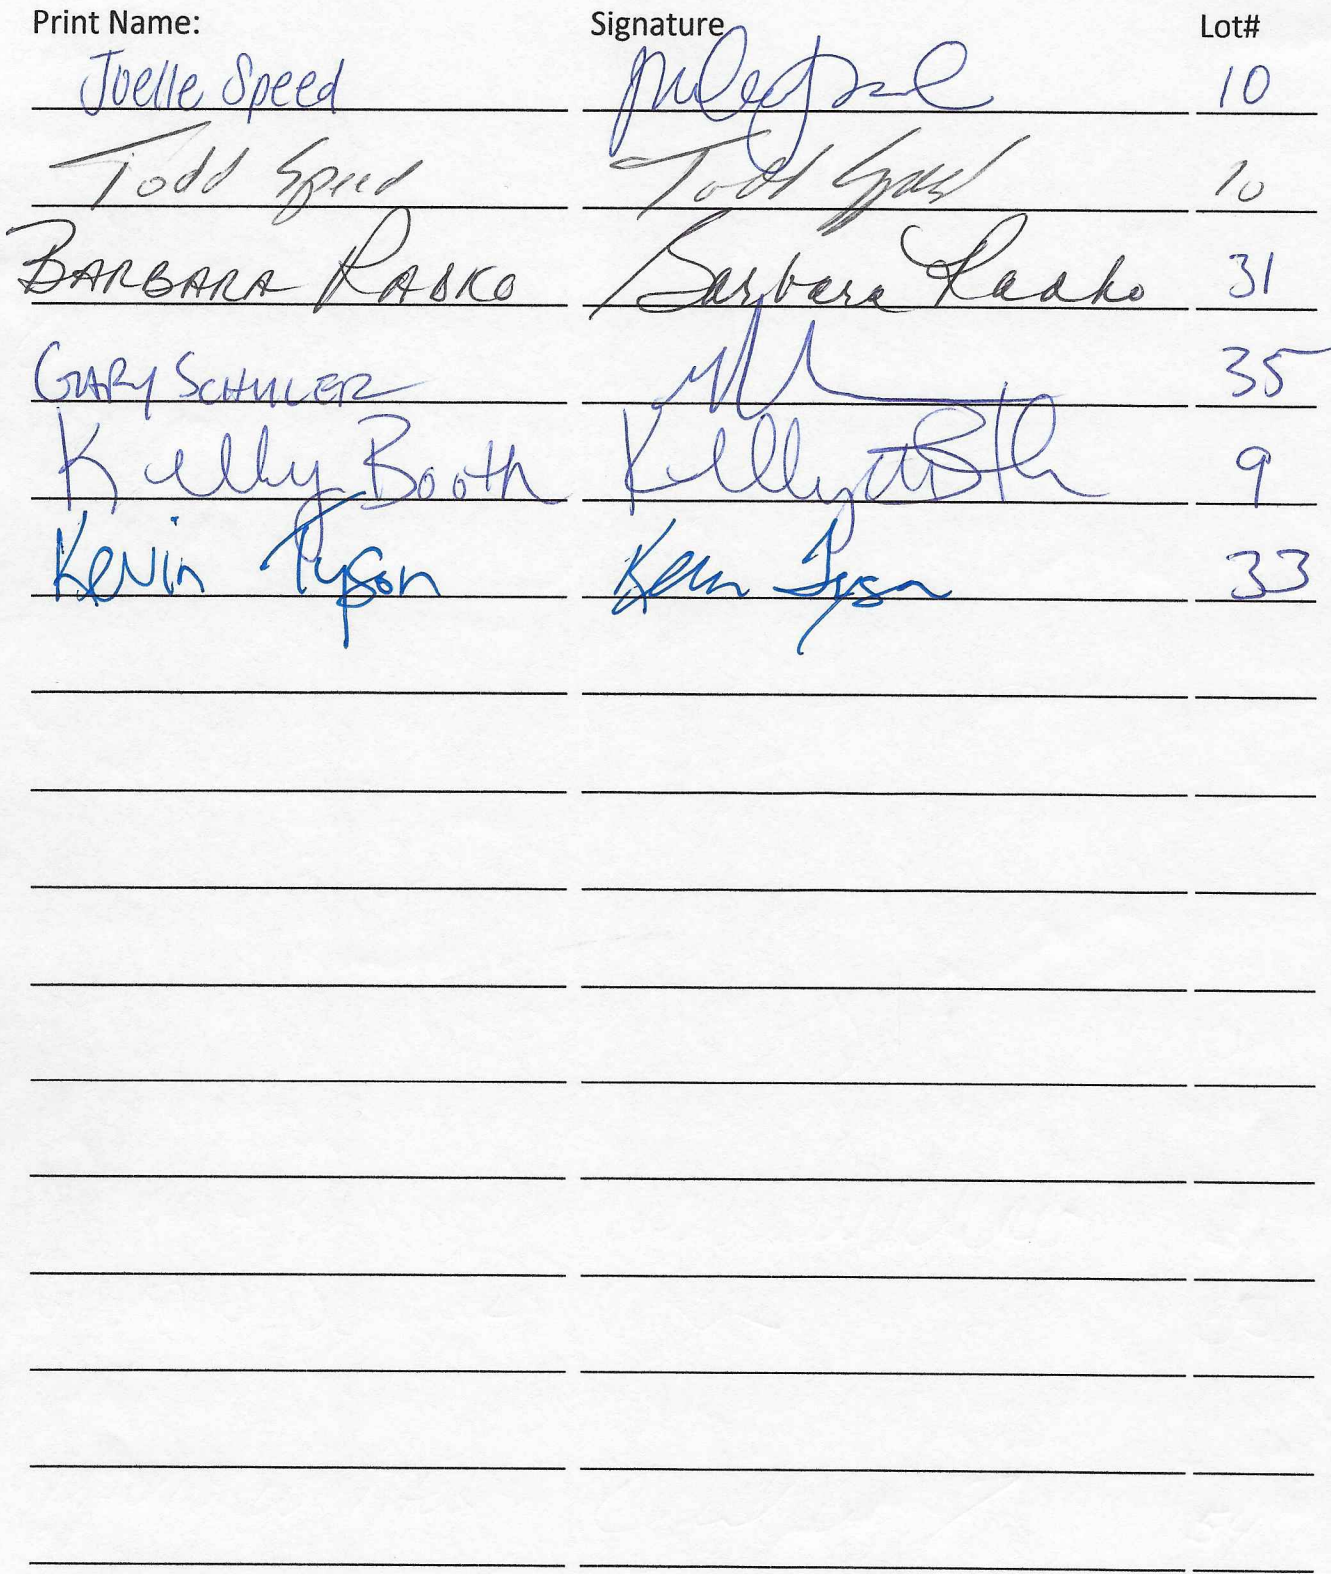 Print Name: Signature Lot#
Joelle Speed 10
Todd Speed Todd Speed 10
BARBARA RADKO Barbara Radko 31
GARY SCHULER 35
Kelly Booth Kelly Booth 9
Kevin Tyson Kevin Tyson 33